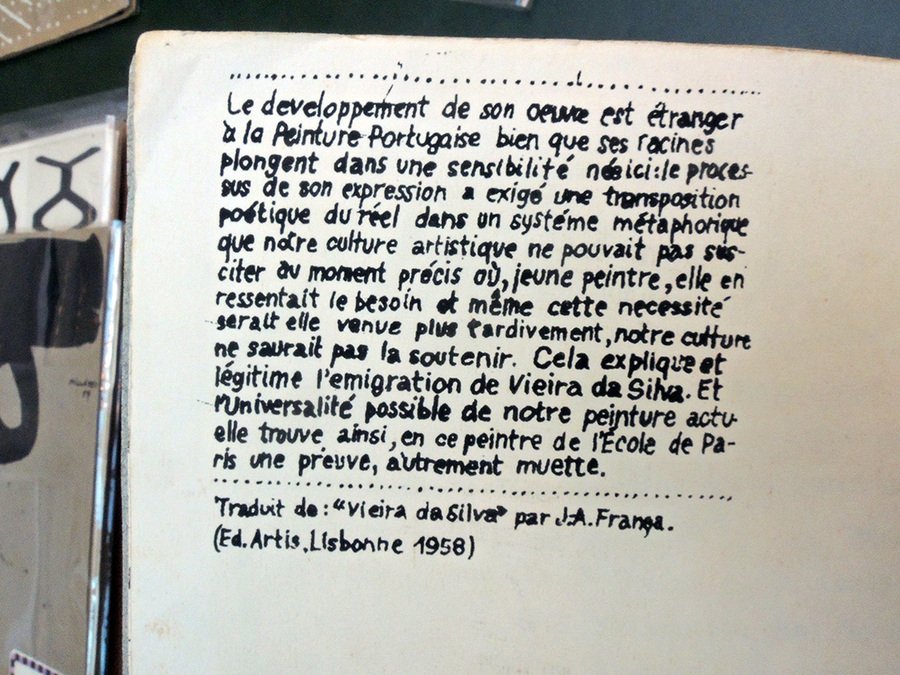 Le developpement de son oeuvre est étranger
à la Peinture Portugaise bien que ses racines
plongent dans une sensibilité née ici: le proces-
sus de son expression a exigé une transposition
poétique du réel dans un systéme métaphorique
que notre culture artistique ne pouvait pas sus-
citer au moment précis où, jeune peintre, elle en
ressentait le besoin et même cette necessité
serait elle venue plus tardivement, notre culture
ne saurait pas la soutenir. Cela explique et
légitime l'emigration de Vieira da Silva. Et
l'Universalité possible de notre peinture actu-
elle trouve ainsi, en ce peintre de l'École de Pa-
ris une preuve, autrement muette.
Traduit de: "Vieira da Silva" par J.-A. França.
(Ed. Artis, Lisbonne 1958)